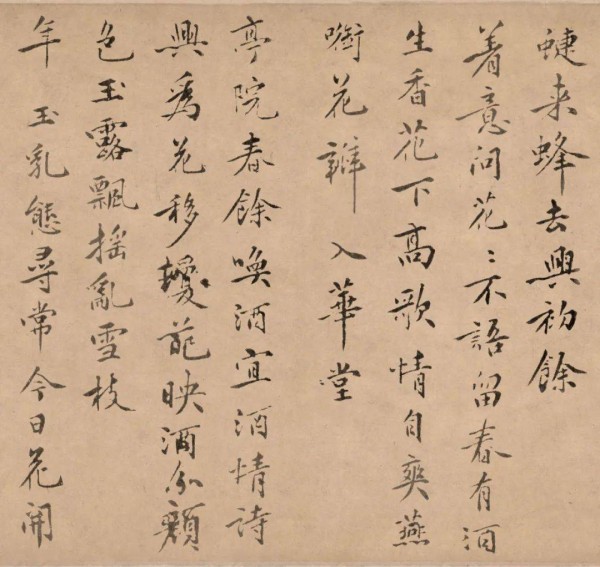 蜨来蜂去興初餘
着意问花〻不語留春有酒
生香花下高歌情自爽燕
啣花瓣入華堂
亭院春餘唤酒宜酒情詩
興為花移葩映酒分顏
色玉露飄摇亂雪枝
年玉乳態尋常今日花開